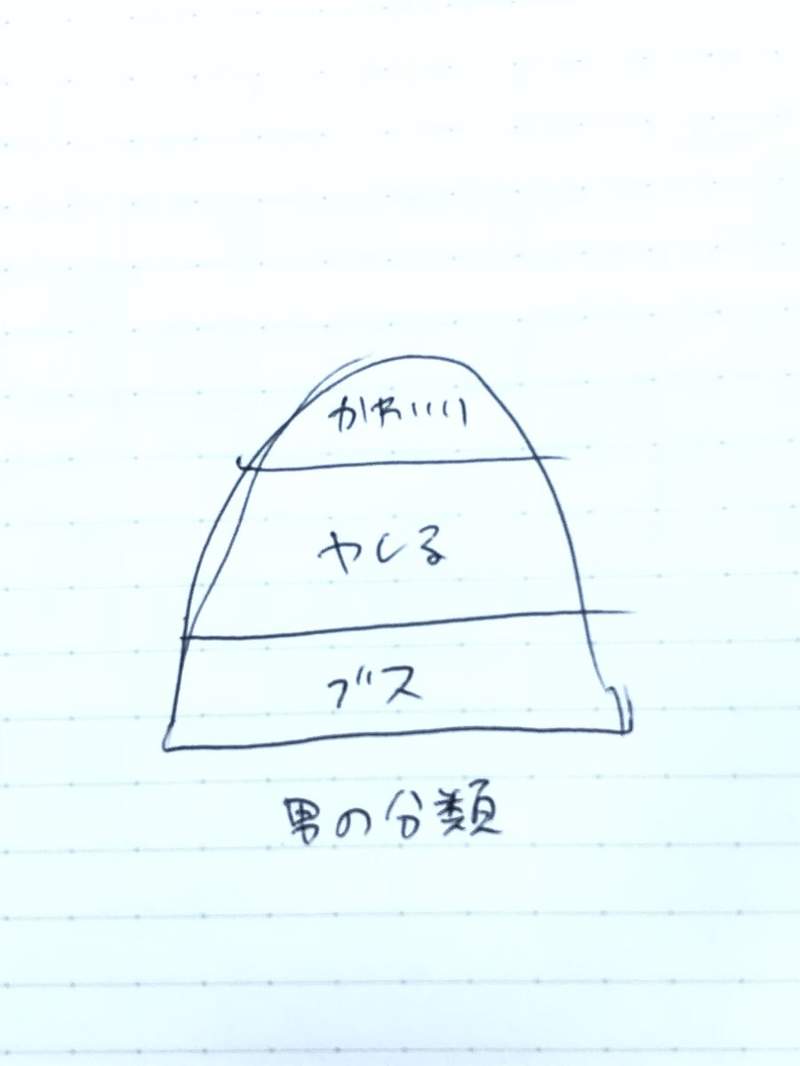 かわいい
やしろ
ブス
男の分類